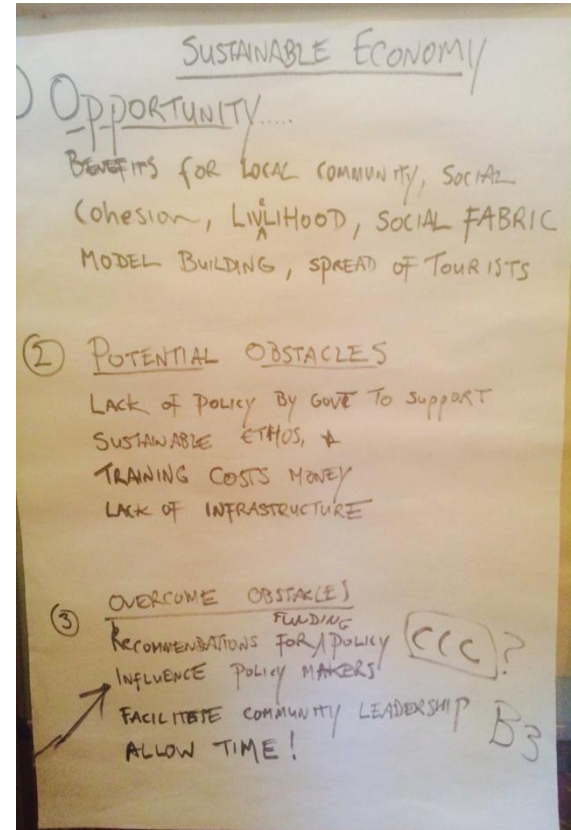 SUSTAINABLE ECONOMY
OPPORTUNITY.....
BENEFITS FOR LOCAL COMMUNITY, SOCIAL
Cohesion, LIVELIHOOD, SOCIAL FABRIC
MODEL BUILDING, SPREAD OF TOURISTS
② POTENTIAL OBSTACLES
LACK OF POLICY BY GOVT TO SUPPORT
SUSTAINABLE ETHOS,
TRAINING COSTS MONEY
LACK OF INFRASTRUCTURE
③ OVERCOME OBSTACLES
RECOMMENDATIONS FOR FUNDING POLICY CCC?
INFLUENCE POLICY MAKERS
FACILITETE COMMUNITY LEADERSHIP B3
ALLOW TIME!